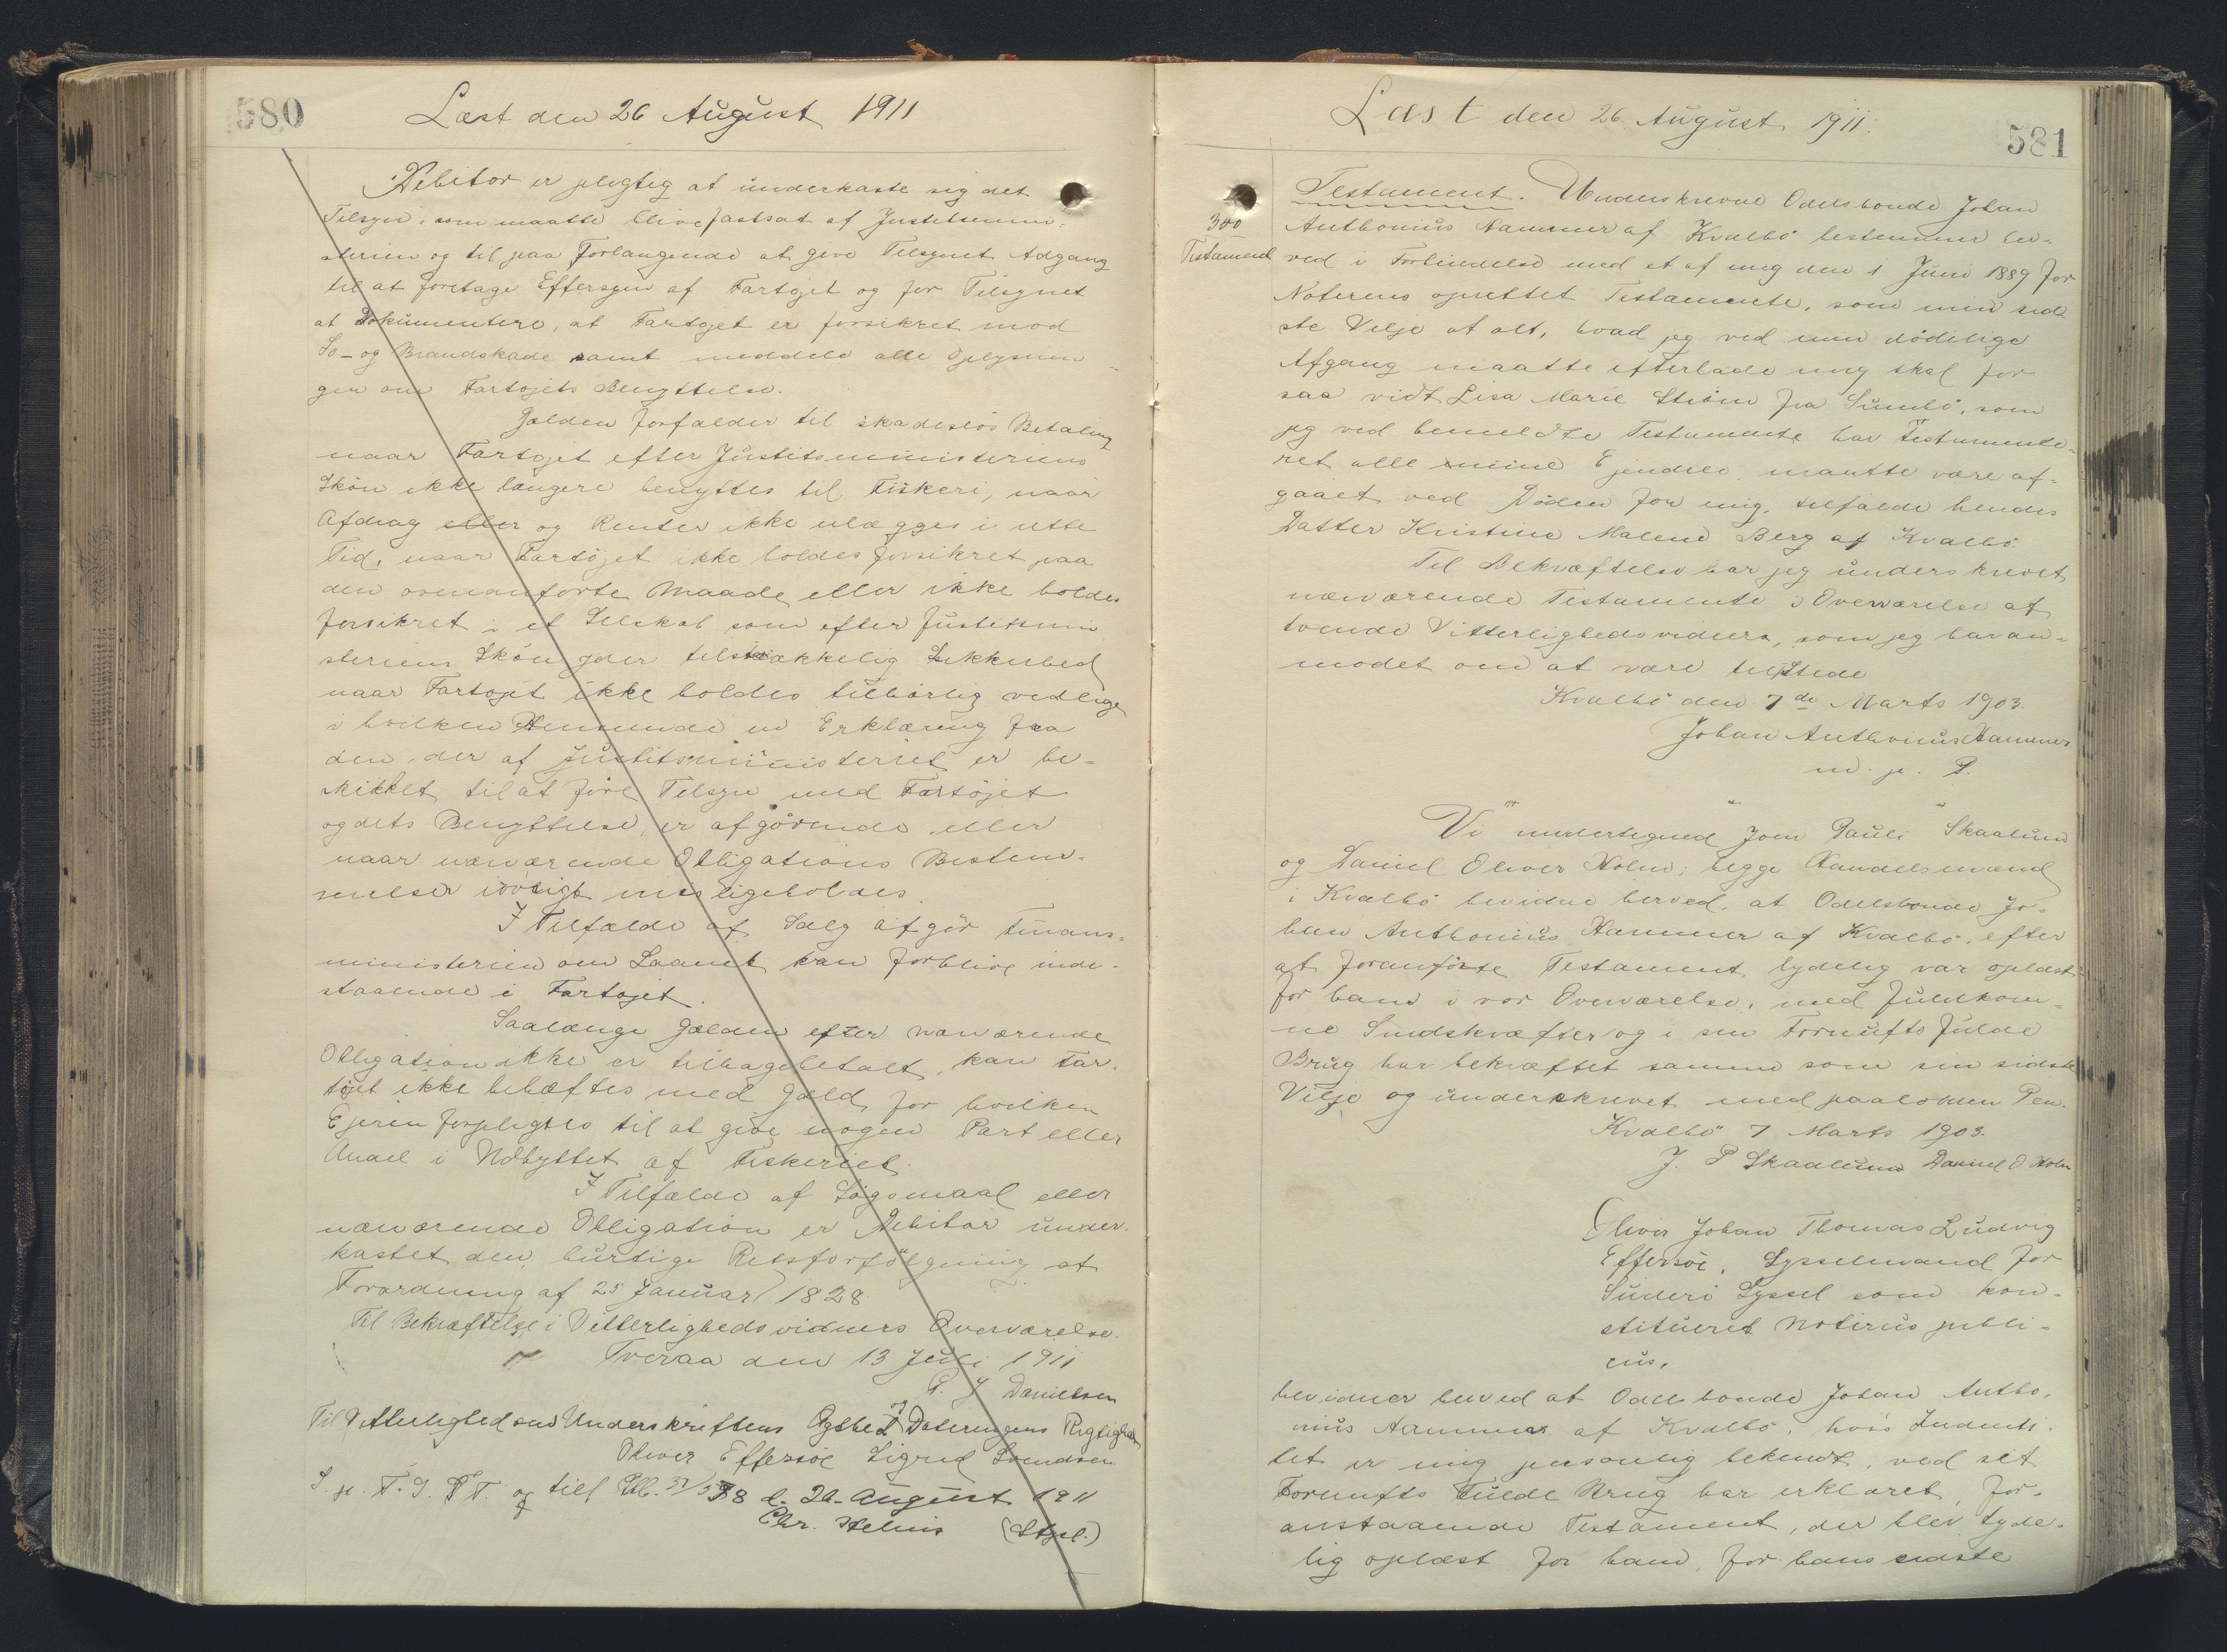 580
Læst den 26 August 1911
Debitor er pligtig at underkaste sig det
Tilsyn, som maatte blive fastsat af Justitsmini-
sterien og til paa Forlangende at give Tilsynet Adgang
til at foretage Eftersyn af Fartøjet og for Tilsynet
at Dokumentere, at Fartøjet er forsikret mod
Sø- og Brandskade samt meddele alle Oplysnin-
ger om Fartøjets Benyttelse.
Gælden forfalder til skadesløs Betaling
naar Fartøjet efter Justitsministeriens
Skøn ikke længere benyttes til Fiskeri, naar
Afdrag eller og Renter ikke erlægges i rette
Tid, naar Fartøjet ikke holdes forsikret paa
den ovenanførte Maade eller ikke holdes
forsikret i et Selskab som efter Justitsmini
steriens Skøn yder tilstrækkelig Sikkerhed
naar Fartøjet ikke holdes tilbørlig vedlige
i hvilken Henseende en Erklæring fra
den, der af Justitsministeriet er be-
skikket til at føre Tilsyn med Fartøjet
og dets Benyttelse, er afgørende, eller
naar nærværende Obligations Bestem-
melser iøvrigt misligeholdes.
I Tilfælde af Salg afgør Finans-
ministerien om Laanet kan forblive inde-
staaende i Fartøjet.
Saalænge Gælden efter nærværende
Obligation ikke er tilbagebetalt, kan Far-
tøjet ikke behæftes med Gæld, for hvilken
Ejeren forpligtes til at give nogen Part eller
Andel i Udbyttet af Fiskeriet.
I Tilfælde af Søgsmaal eller
nærværende Obligation er Debitor under-
kastet den hurtige Retsforfølgning at
Forordning af 25 Januar 1828.
Til Bekræftelse i Vitterlighedsvidners Overværelse.
Tveraa den 13 Juli 1911
P. J Danielsen
Til Vitterlighed om Underskriftens Ægthed og Dateringens Rigtighed
Oliver Effersøe Sigrid Svendsen
S. p. F. J. P T. og till Bl. 37/538 d. 26-August 1911
Chr. Helms (Stpl.)
Læst den 26 August 1911.
581
300
Testament
Testament. Underskrevne Odelsbonde Johan
Anthonius Hammer af Kvalbø bestemmer her-
ved i Forbindelse med et af mig den 1 Juni 1889 for
Noterens oprettet Testamente, som min sid
ste Vilje at alt, hvad jeg ved min dødelige
Afgang maatte efterlade mig skal for
saa vidt Lisa Marie Strøm fra Sumbø, som
jeg ved bemeldte Testamente har Testamente-
ret alle mine Ejendele, maatte være af-
gaaet ved Døden for mig, tilfalde hendes
Datter Kristine Malene Berg af Kvalbø.
Til Bekræftelse har jeg underskrevet
nærværende Testamente i Overværelse af
tvende Vitterlighedsvidner, som jeg har an-
modet om at være tilstede
Kvalbø den 7de Marts 1903.
Johan Anthonius Hammer
m. p. P.
Vi undertegned Joen Pauli Skaalum
og Daniel Oliver Holm, begge Handelsmænd
i Kvalbø bevidne herved at Odelsbonde Jo-
han Anthonius Hammer af Kvalbø, efter
at foranførte Testament tydelig var oplæst
for ham i vor Overværelse, med fuldkom-
ne Sindskræfter og i sin Fornufts fulde
Brug har bekræftet samme som sin sidste
Vilje og underskrevet med paaholden Pen.
Kvalbø 7 Marts 1903.
J. P Skaalum Daniel O Holm
Oliver Johan Thomas Ludvig
Effersøe, Sysselmand for
Suderø Syssel som kon-
stitueret Noterius publi-
cus,
bevidner herved at Odelsbonde Johan Antho-
nius Hammer af Kvalbø, hvis Indenti-
tet er mig personlig bekendt, ved sit
Fornufts Fulde Brug har erklæret, for-
anstaaende Testament, der blev tyde-
lig oplæst for ham, for hans sidste